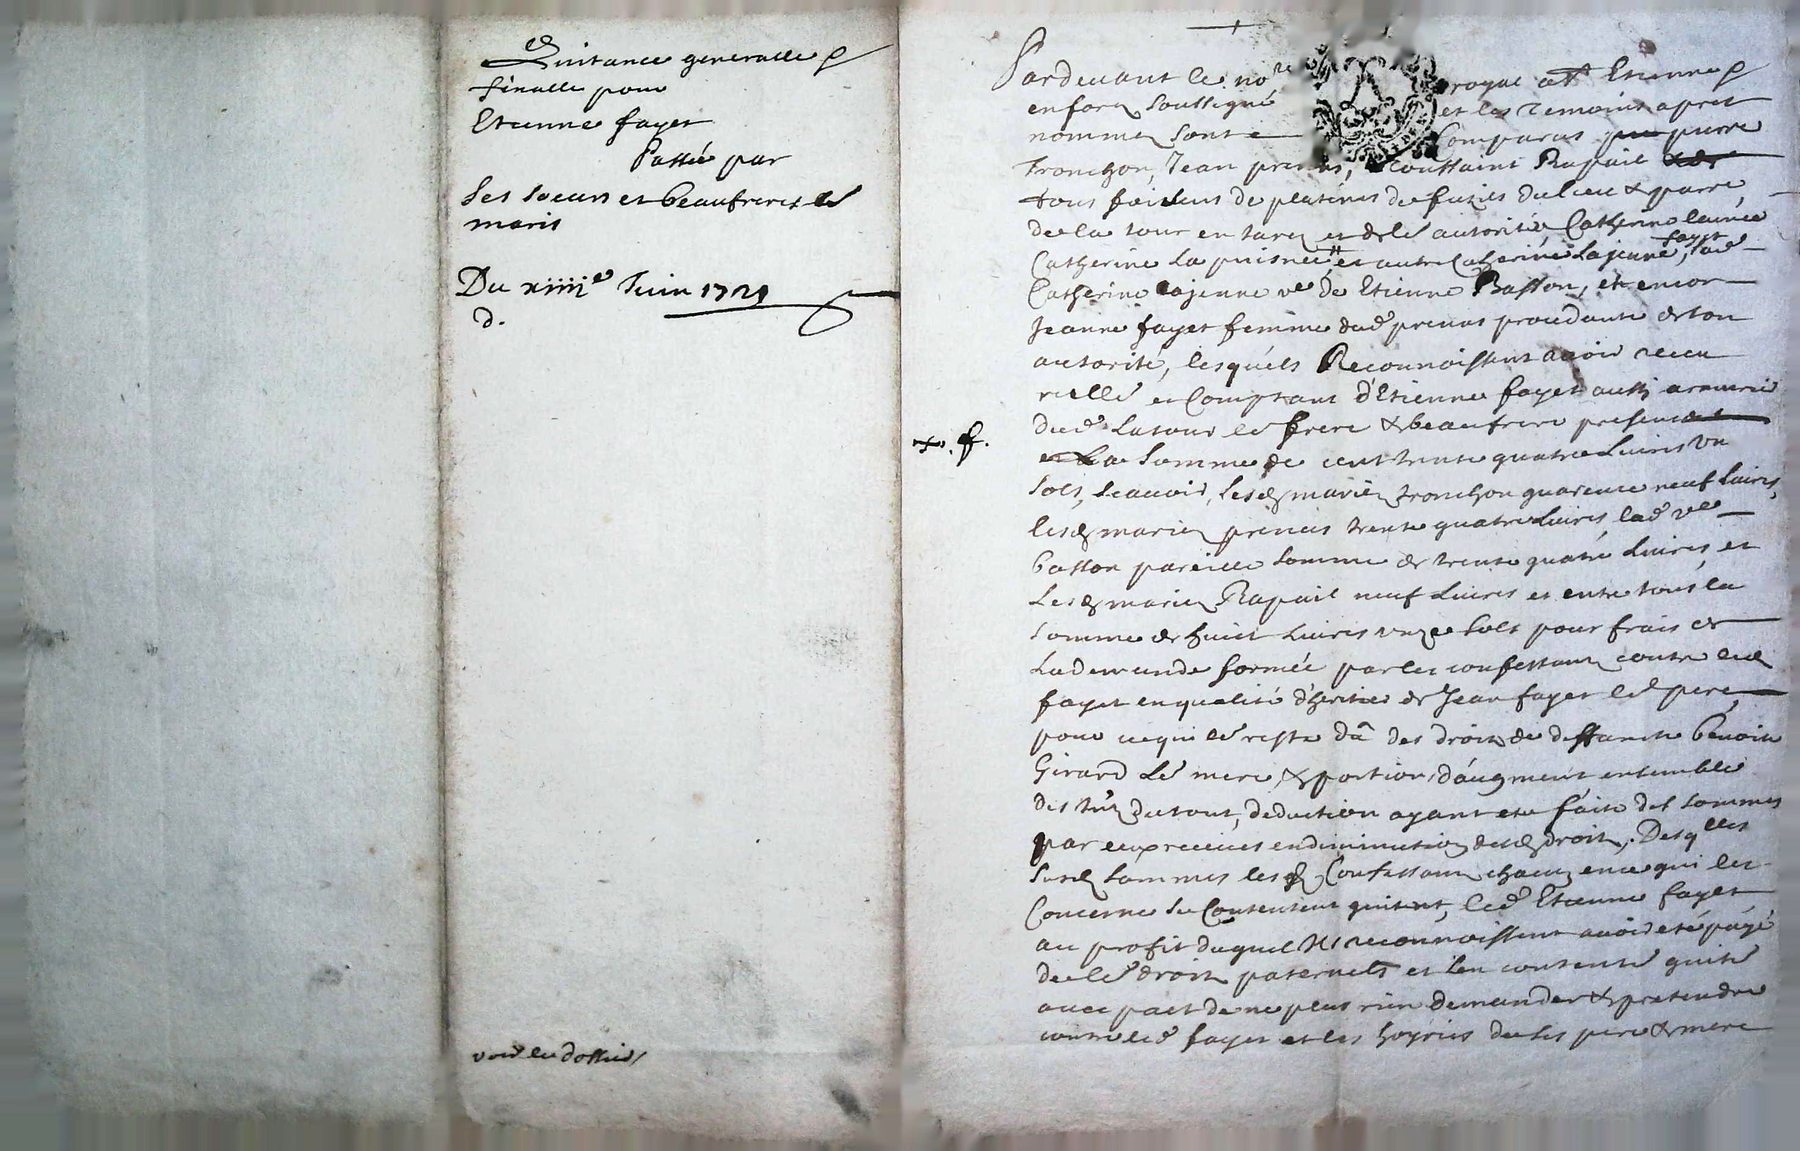 Quitance generalle &
finalle pour
Etienne fayet
Passée par
ses soeurs et beaufreres &
maris
Du xiiiie Juin 1721
d.
voir le dossier
Pardevant le nore royal a St Etienne &
en forez soussigné et les temoins apres
nommez sont Comparus pierre
tronchon, Jean prenas, & toussaint Rapail
tous faiseurs de platines de fuzils du lieu & parre
de la tour en farez et de le autorité Catherine lainée
Catherine la puisnée et autre Catherine Lajeune, fayet lad
Catherine lajeune ve de Etienne Basson, et encor
Jeanne fayet femme dud prenas procedante de son
autorité, lesquels Reconnoissent avoir receu
reelle et Comptant d'Etienne fayet aussi armurie
dud Latour le frere & beaufrere present
+. f.
la somme de cent trente quatre Livres un
sols, scavoir, lesd mariez tronchon quarente neuf Livres,
lesd mariez prenas trente quatre Livres lad vee
basson pareille somme de trente quatre Livres, et
Lesd mariez Rapail neuf Livres et entre tous la
somme de huict Livres unze sols pour frais de
La demande formée par les confessans contre led
fayet en qualité d'heritier de Jean fayet led pere
pour ce qui lé reste dû des droits de deffuncte benoite
Girard Lé mere & portion, d'augment ensemble
des du tout, deduction ayant eté faite des sommes
par eux receues en diminution desd droits. Desqlles
susd sommes lesd Confessans chacun en ce qui les
Concerne se Contentent quittent, led Etienne fayet
au profit duquel ils reconnoissent avoir eté payé
de lé droits paternels et sen contenté quité
avec pact de ne plus rien demander & pretendre
contre led fayet et les hoyries de ses pere & mere